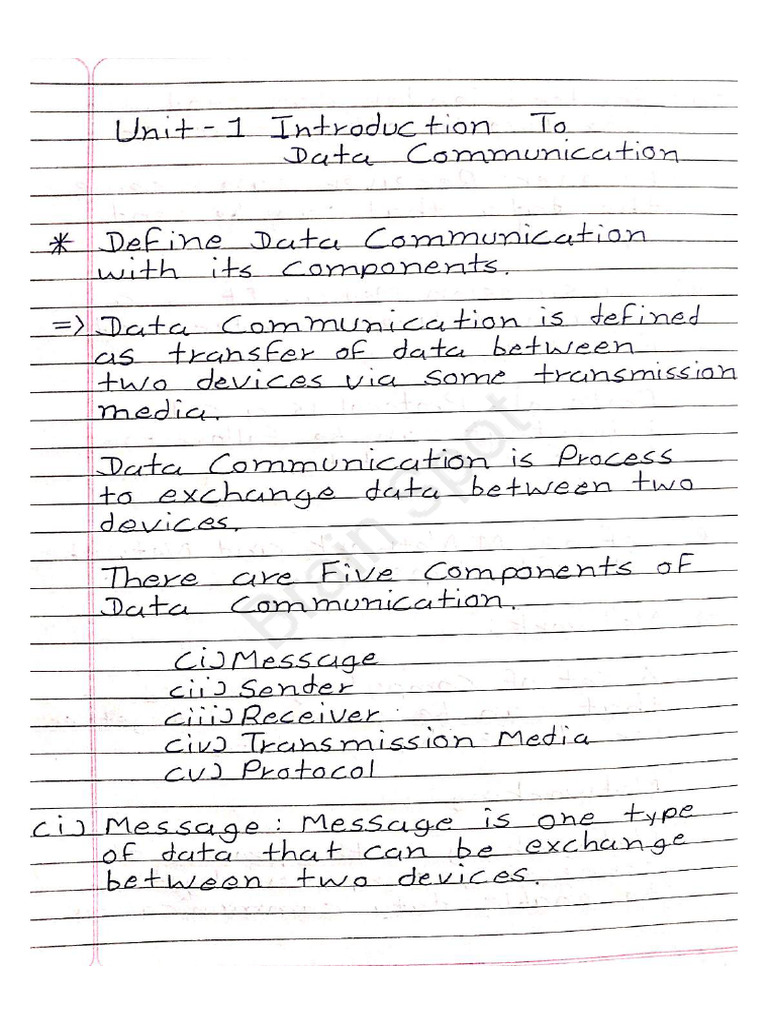 Unit-1 Introduction To
Data Communication
* Define Data Communication
with its components.
=> Data Communication is defined
as transfer of data between
two devices via some transmission
media.
Data Communication is Process
to exchange data between two
devices.
There are Five Components of
Data Communication.
(i) Message
(ii) Sender
(iii) Receiver
(iv) Transmission Media
(v) Protocol
(i) Message : Message is one type
of data that can be exchange
between two devices.
Brain Spot